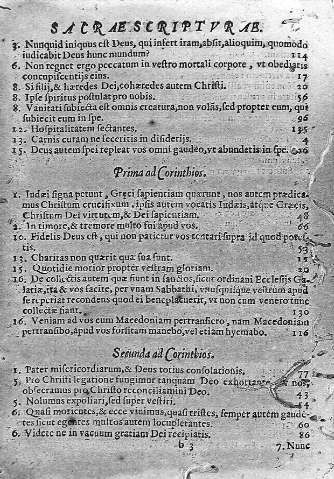 SACRAE SCRIPTVRAE.
3. Nunquid iniquus est Deus, qui infert iram, absit, alioquim, quomodo
iudicabit Deus hunc mundum? 114
6. Non regnet ergo peccatum in vestro mortali corpore, vt obediatis
concupiscentijs eius. 17
8. Si filij, & hæredes Dei, cohæredes autem Christi. 20
8. Ipse spiritus postulat pro nobis. 56
8. Vanitati subiecta est omnis creatura, non volẽs, sed propter eum, qui
subiecit eum in spe. 96
12. Hospitalitatem sectantes. 135
13. Carnis curam ne feceritis in desiderijs. 4
15. Deus autem spei repleat vos omni gaudio, vt abundetis in spe.
Prima ad Corinthios.
1. Iudæi signa petunt, Græci sapientiam quærunt, nos autem prædica-
mus Christum crucifixum, ipsis autem vocatis Iudæis, atque Græcis,
Christum Dei virtutem, & Dei sapientiam. 48
2. In timore, & tremore multo fui apud vos. 66
10. Fidelis Deus est, qui non patietur vos tentari supra id quod potes-
tis. 53
13. Charitas non quærit quæ sua sunt. 15
15. Quotidie morior propter vestram gloriam. 20
16. De collectis autem quæ fiunt in sanctos, sicut ordinaui Ecclesijs Ga-
latiæ, ita & vos facite, per vnam Sabbathi, vnusquisque vestrum apud
se reponat recondens quod ei beneplacuerit, vt non cum venero tunc
collectæ fiant. 130
16. Veniam ad vos cum Macedoniam pertransiero, nam Macedoniam
pertransibo, apud vos forsitam manebo, vel etiam hyemabo. 116
Secunda ad Corinthios.
1. Pater misericordiarum, & Deus totius consolationis. 77
5. Pro Christi legatione fungimur tanquam Deo exhortante nos,
obsecramus pro Christo reconciliamini Deo. 43
5. Nolumus expoliari, sed super vestiri. 54
6. Quasi morientes, & ecce viuimus, quasi tristes, semper autem gaudé-
tes sicut egentes multos autem locupletantes. 60
6. Videte ne in vacuum gratiam Dei recipiatis. 86
b 3 7. Nunc